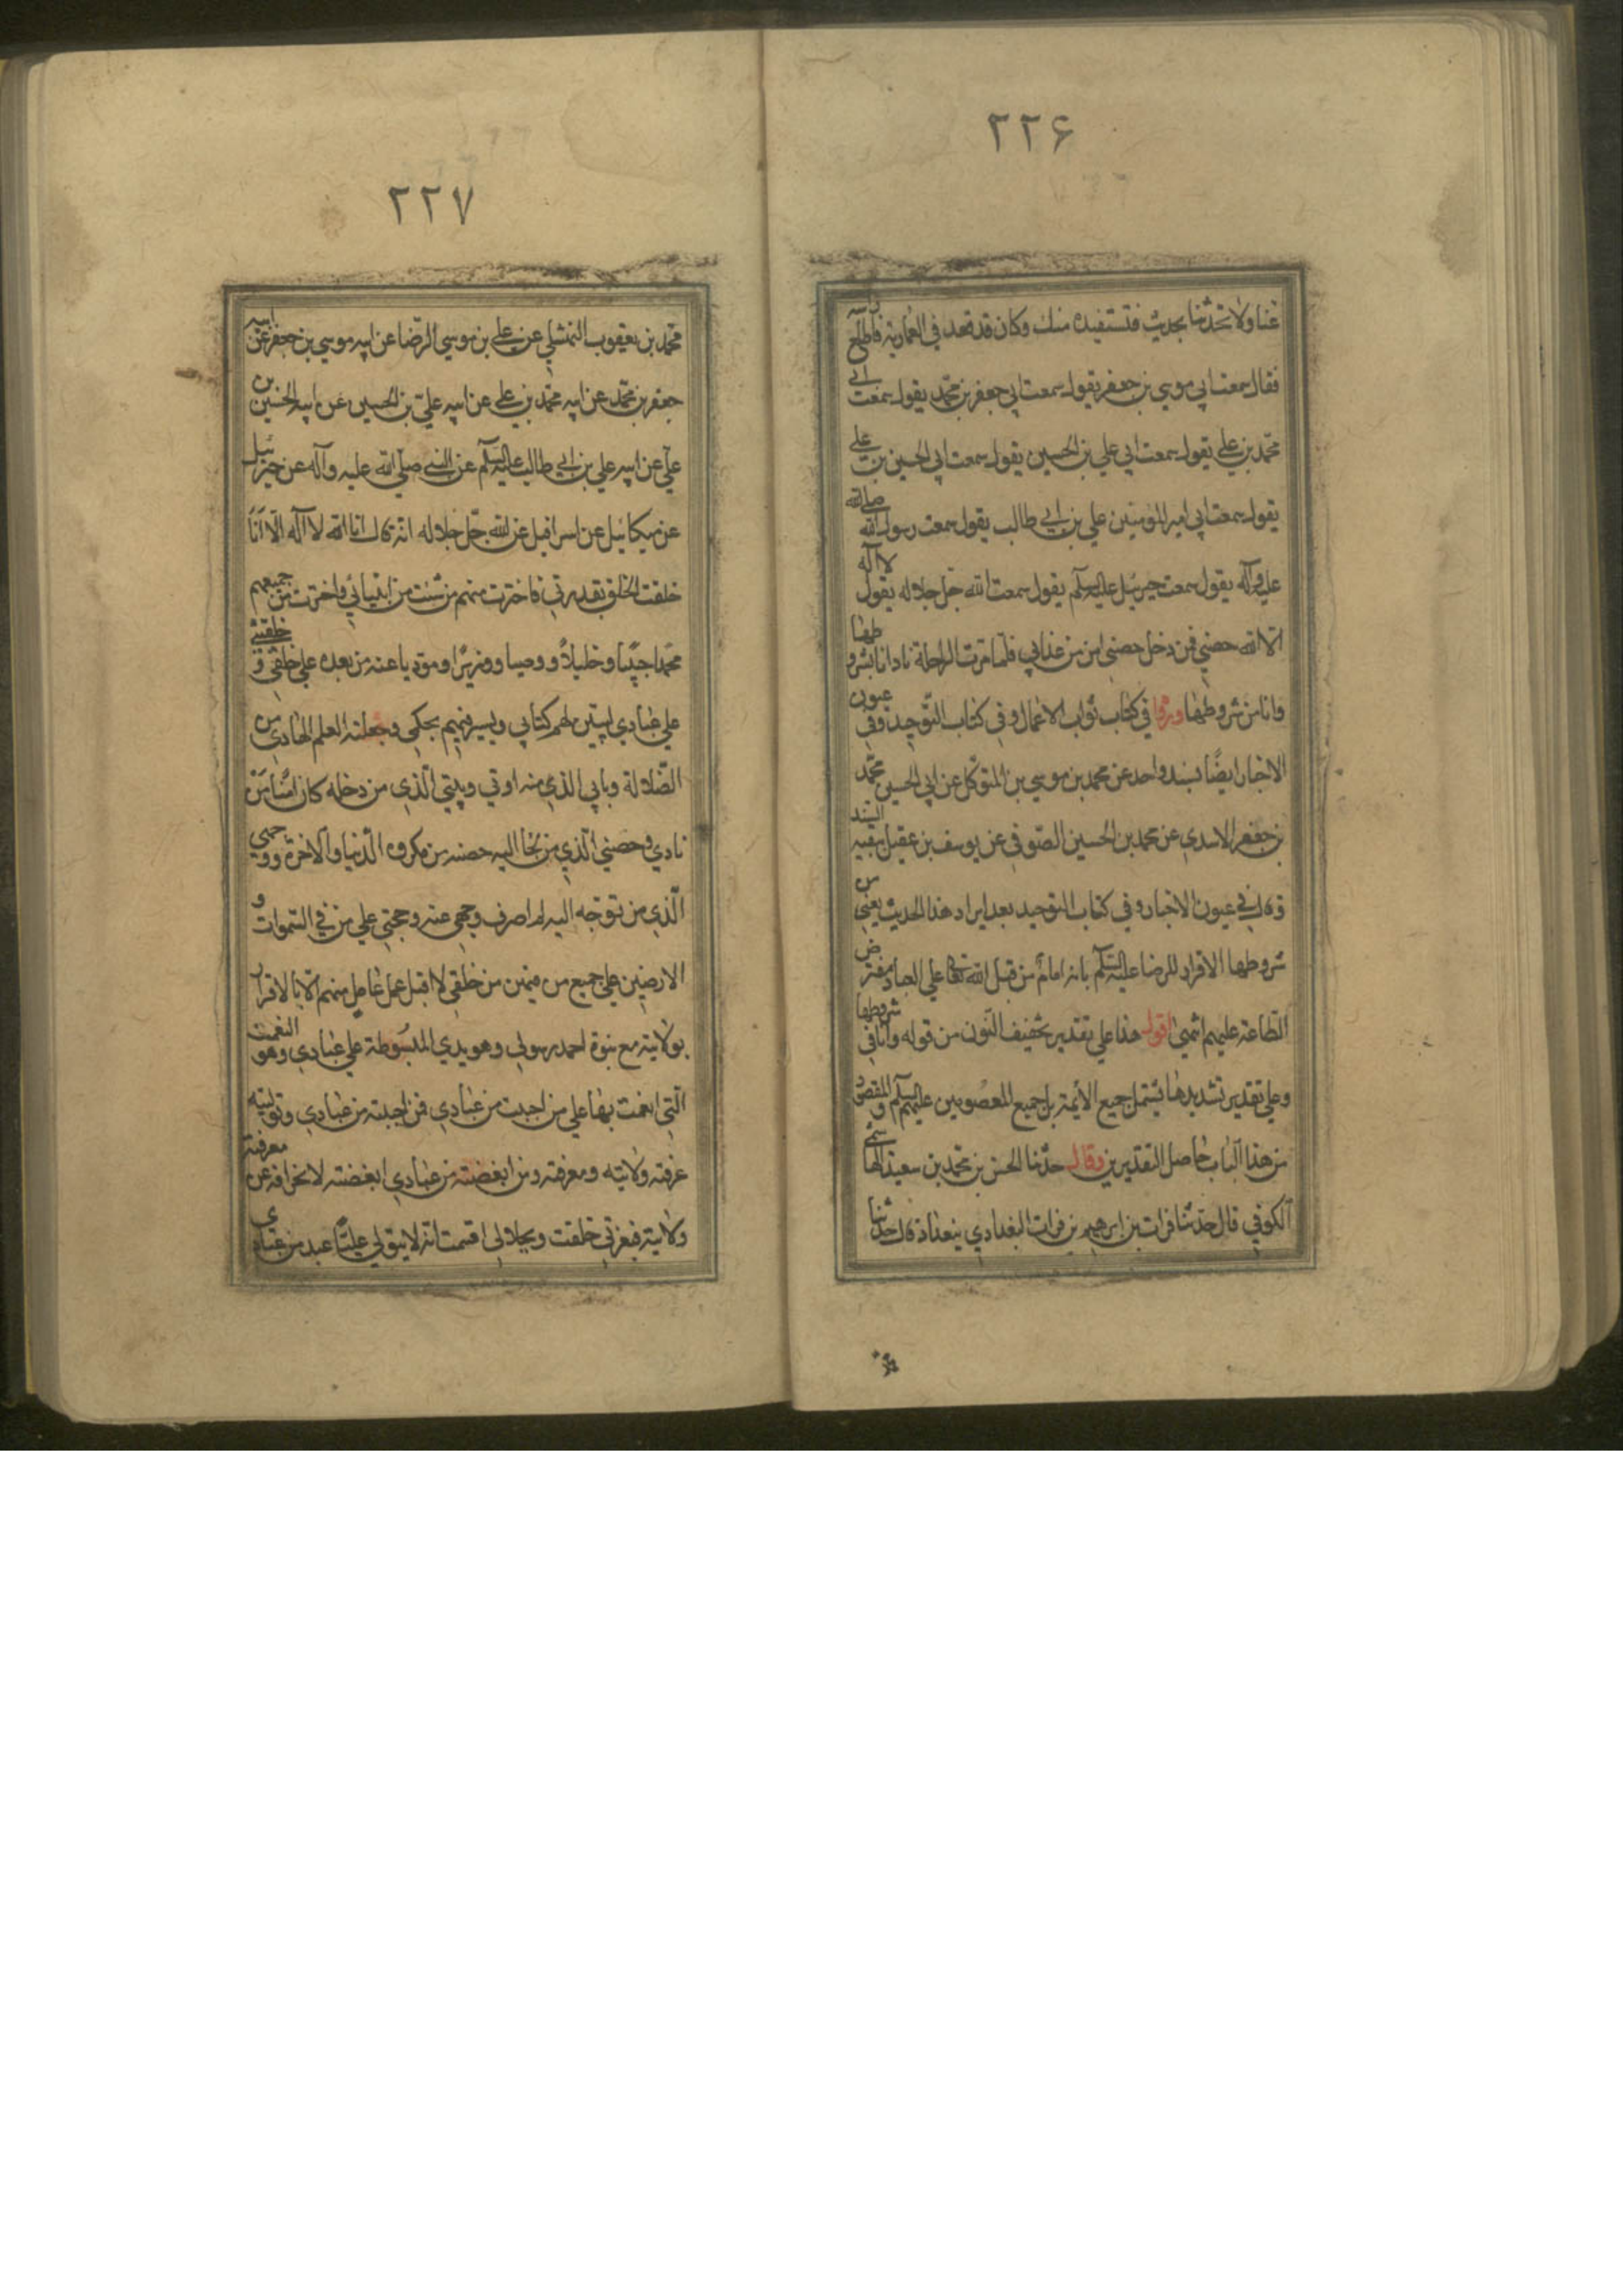 ۲۲۶
عنا ولا تحدثنا بحديث فنستفيده منك وكان قد قعد في العمارية فاطلع راسه
فقال سمعت ابي موسي بن جعفر يقول سمعت ابي جعفر بن محمد يقول سمعت ابي
محمد بن علي يقول سمعت ابي علي بن الحسين يقول سمعت ابي الحسين بن علي
يقول سمعت ابي امير المؤمنين علي بن ابي طالب يقول سمعت رسول الله صلي الله
عليه وآله يقول سمعت جبرئيل عليه السلم يقول سمعت الله جل جلاله يقول لا اله
الا الله حصني فمن دخل حصني امن من عذابي فلما مرت الراحلة نادانا بشروطها
وانا من شروطها ورواه في كتاب ثواب الاعمال وفي كتاب التوحيد وفي عيون
الاخبار ايضًا بسند واحد عن محمد بن موسي بن المتوكل عن ابي الحسين محمد
بن جعفر الاسدي عن محمد بن الحسين الصوفي عن يوسف بن عقيل ببقية السند
وقال في عيون الاخبار وفي كتاب التوحيد بعد ايراد هذا الحديث يعني من
شروطها الاقرار للرضا عليه السلم بانه امام من قبل الله تعالي علي العباد مفترض
الطاعة عليهم انتهي اقول هذا علي تقدير تخفيف النون من قوله وانا في شروطها
وعلي تقدير تشديدها يشتمل جميع الأئمة بل جميع المعصومين عليهم السلم والمقصود
من هذا الباب حاصل التقديرين وقال حدثنا الحسن بن محمد بن سعيد الهاشمي
الكوفي قال حدثنا فرات بن ابرهيم بن فرات البغدادي ببغداد قال حدثنا
۲۲۷
محمد بن يعقوب النهشلي عن علي بن موسي الرضا عن ابيه موسي بن جعفر عن ابيه
جعفر بن محمد عن ابيه محمد بن علي عن ابيه علي بن الحسين عن ابيه الحسين بن
علي عن ابيه علي بن ابي طالب عليه السلم عن النبي صلي الله عليه وآله عن جبرئيل
عن ميكائيل عن اسرافيل عن الله جل جلاله انه قال انا الله لا اله الا انا
خلقت الخلق بقدرتي فاخترت منهم من شئت من انبيائي واخترت من جميعهم
محمدا حبيبًا وخليلاً ووصيا ووزيرًا ومؤديا عنه من بعده علي خلقي و خليقتي
علي عبادي ليبين لهم كتابي ويسير فيهم بحكمي وجعلته العلم الهادي من
الضلالة وبابي الذي منه اوتي وبيتي الذي من دخله كان امنا من
نادي وحصني الذي من لجا اليه حصنه من مكروه الدنيا والاخرة ووجهي
الذي من توجه اليه لم اصرف وجهي عنه وحجتي علي من في السموات و
الارضين علي جميع من فيهن من خلقي لا اقبل عمل عامل منهم الا بالاقرار
بولايته مع نبوة احمد رسولي وهو يدي المبسوطة علي عبادي وهو النعمت
التي انعمت بها علي من احببت من عبادي فمن احببته من عبادي وتوليته
عرفته ولايته ومعرفته ومن ابغضته من عبادي ابغضته لانحرافه عن معرفته
ولايته فبعزتي خلقت وبجلالي اقسمت انه لا يتولي عليًا عبد من عبادي